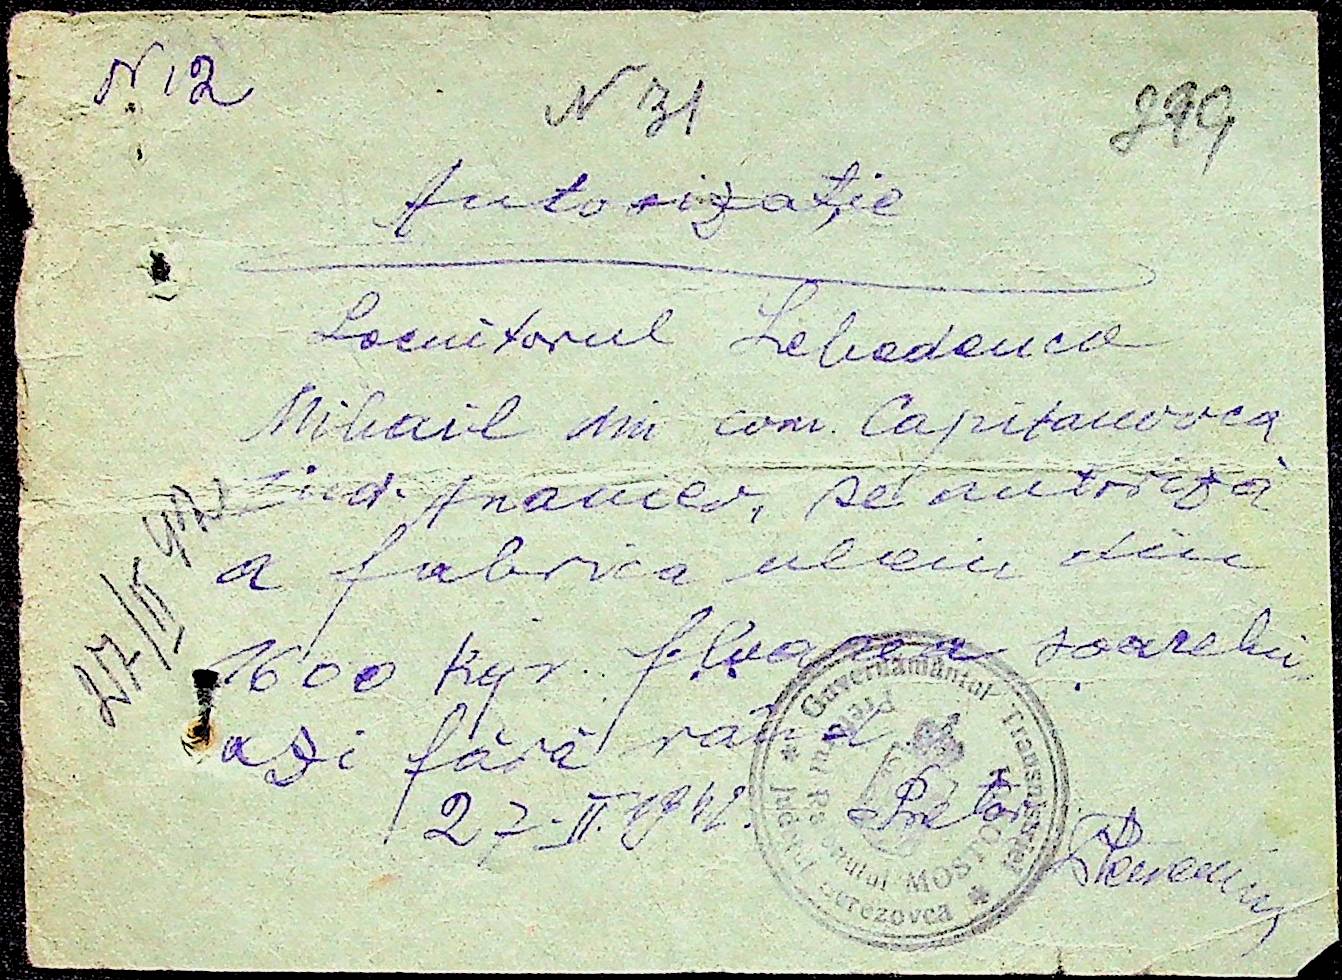 N 12
N 31
899
Autorizaţie
Locuitorul Lebedenco
Mihail din com. Capitanovca
jud. Ananiev, se autoriză
a fabrica uleiu din
1600 kgr. floarea soarelui
azi fără rând
27.II.1942. Pretor
27/II 942
Guvernământul Transnistriei
Judeţul Berezovca
Pretura Raionului MOSTOVOI